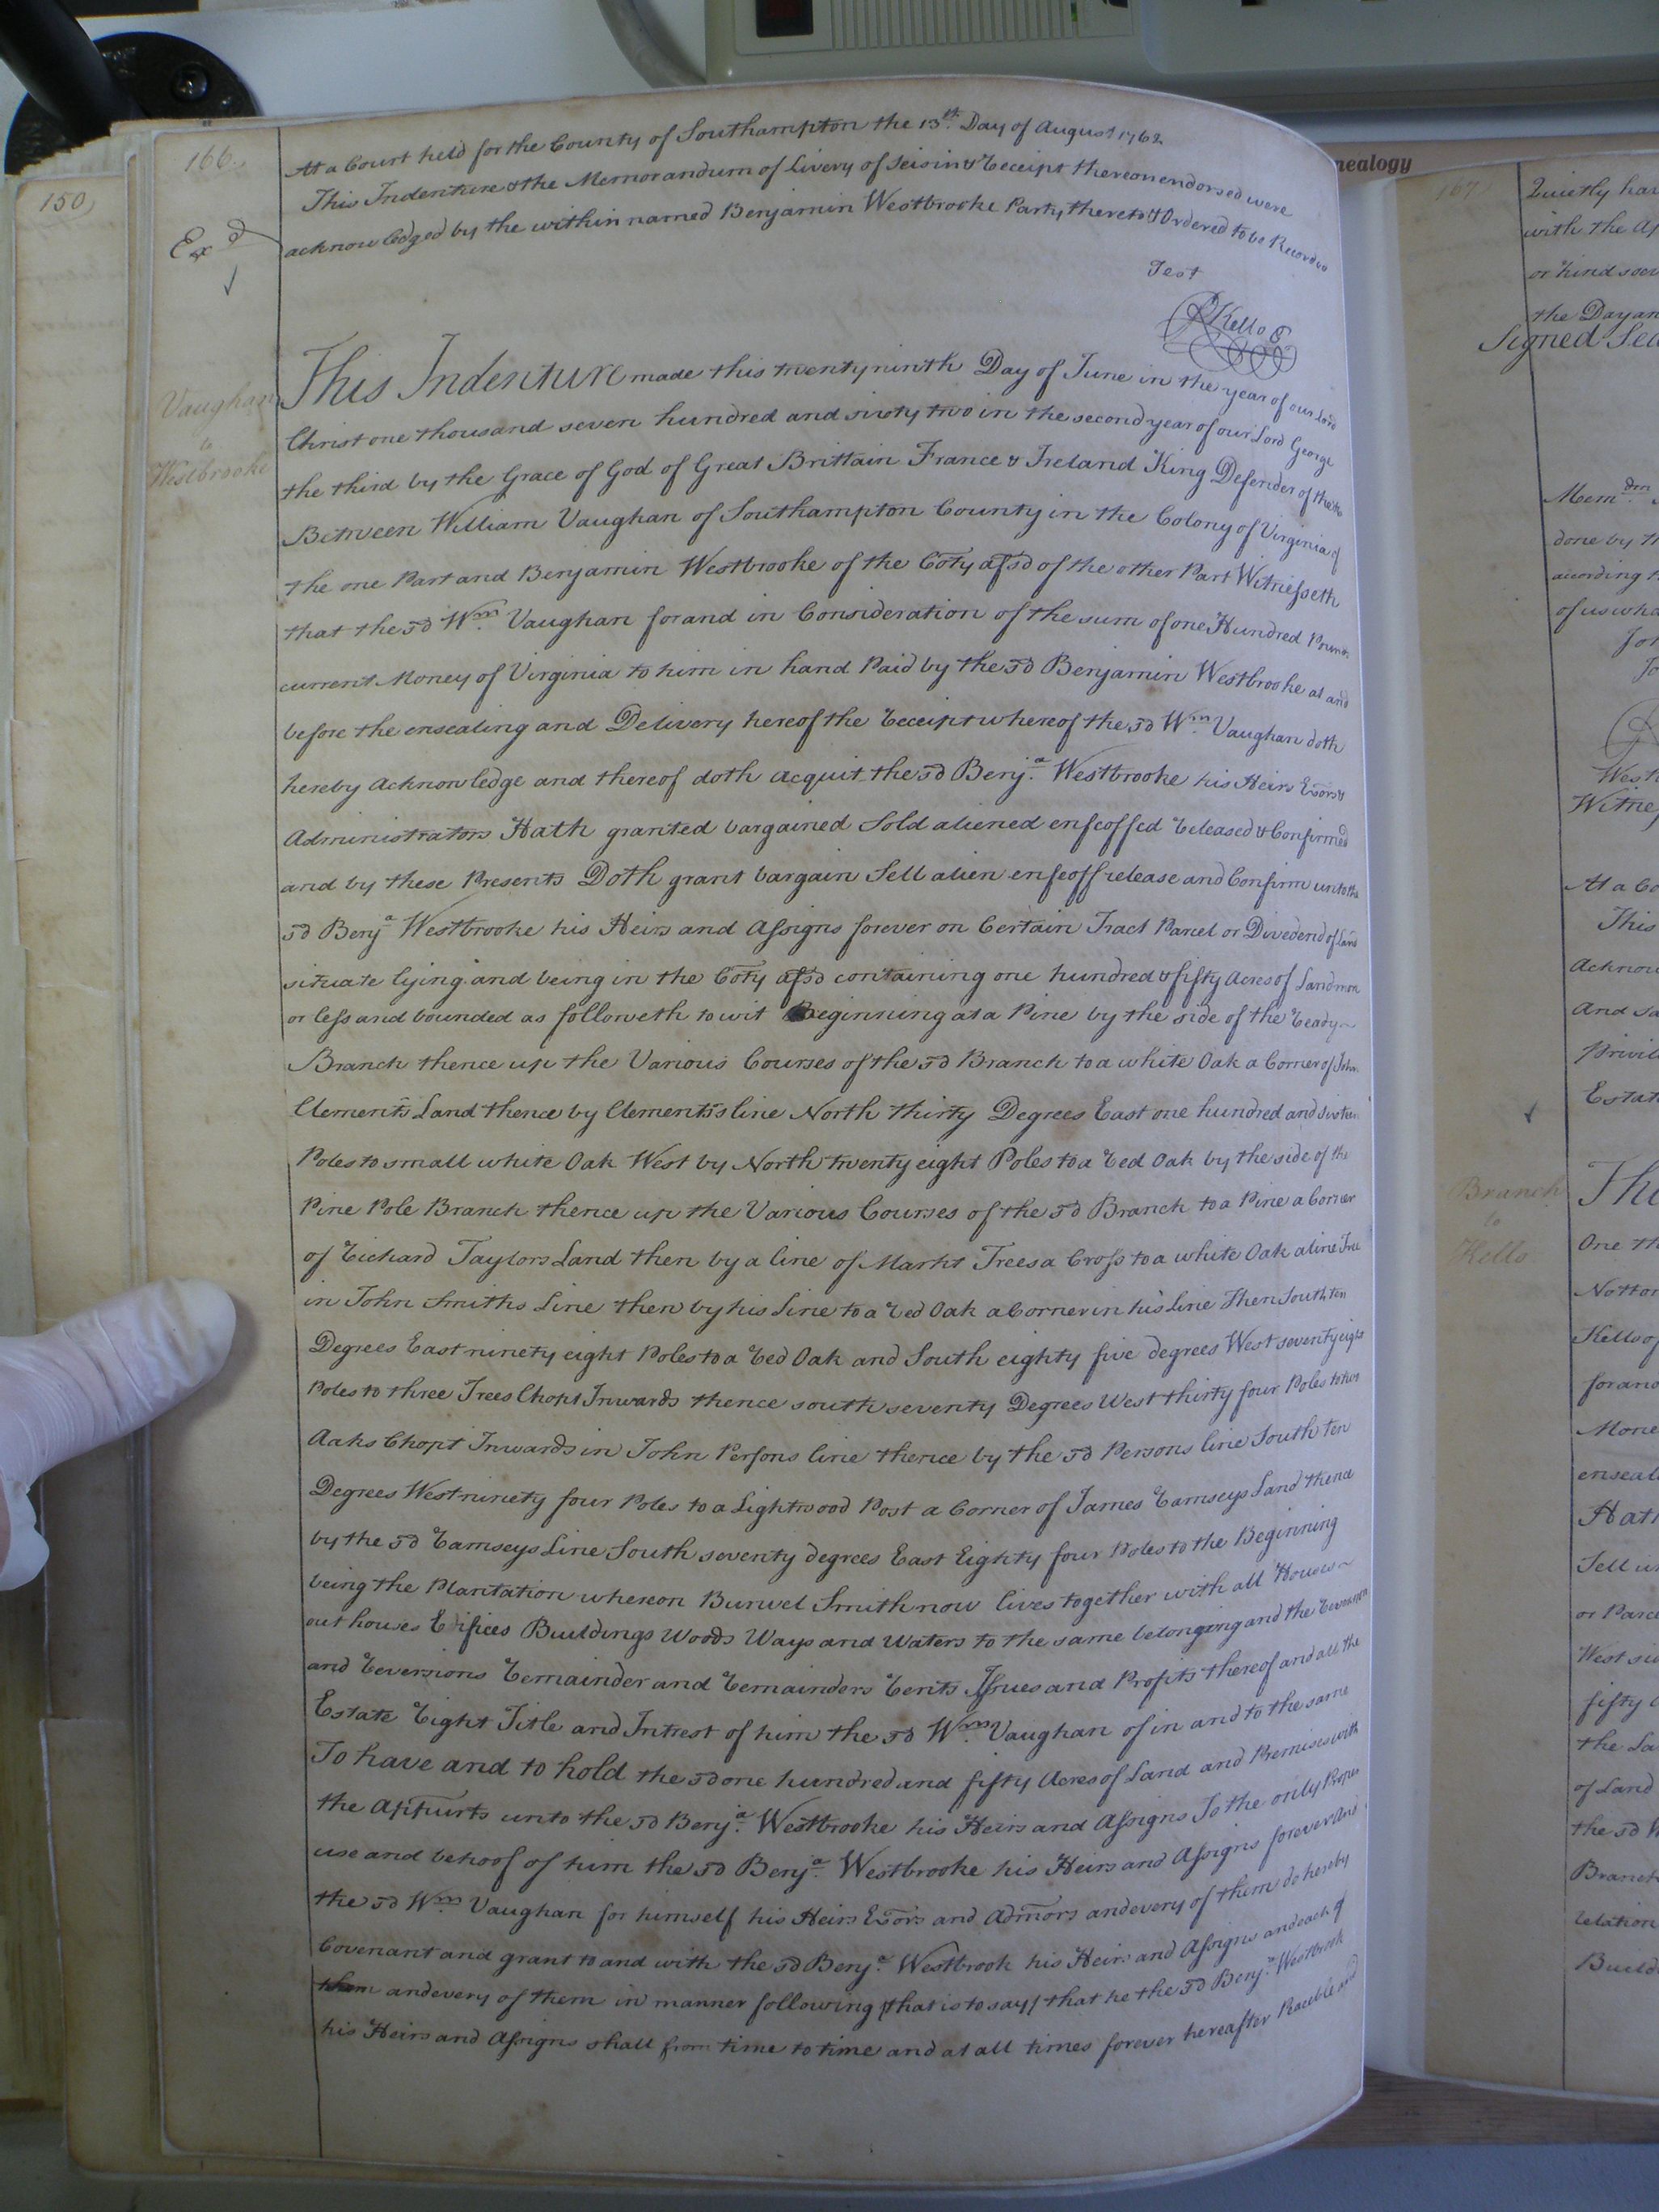 150
166.
At a Court held for the County of Southampton the 13th. Day of August 1762
This Indenture & the Memorandum of Livery of Seisin & Receipt thereon endorsed were
acknowledged by the within named Benjamin Westbrooke Party thereto & Ordered to be Recorded
Exd
Test
RKello
Vaughan
to
Westbrooke
This Indenture made this twenty ninth Day of June in the year of our Lord
Christ one thousand seven hundred and sixty two in the second year of our Lord George
the third by the Grace of God of Great Brittain France & Ireland King Defender of the
Between William Vaughan of Southampton County in the Colony of Virginia of
the one Part and Benjamin Westbrooke of the Coty afsd of the other Part Witnesseth
that the sd Wm. Vaughan for and in Consideration of the sum of one Hundred
current Money of Virginia to him in hand Paid by the sd Benjamin Westbrooke at and
before the ensealing and Delivery hereof the Receipt whereof the sd Wm. Vaughan doth
hereby Acknowledge and thereof doth acquit the sd Benja. Westbrooke his Heirs Exors &
Administrators Hath granted bargained Sold aliened enfeoffed Released & Confirmed
and by these Presents Doth grant bargain Sell alien enfeoff release and Confirm unto the
sd Benja Westbrooke his Heirs and Assigns forever on Certain Tract Parcel or Divedend of Land
situate lying and being in the Coty afsd containing one hundred & fifty Acres of Land more
or less and bounded as followeth to wit Beginning at a Pine by the side of the Ready
Branch thence up the Various Courses of the sd Branch to a white Oak a Corner of John
Clements Land thence by Clements's line North thirty Degrees East one hundred and sixteen
Poles to small white Oak West by North twenty eight Poles to a Red Oak by the side of the
Pine Pole Branch thence up the Various Courses of the sd Branch to a Pine a Corner
of Richard Taylors Land then by a line of Markt Trees a Cross to a white Oak a line Tree
in John Smiths Line then by his Line to a Red Oak a Corner in his Line Then South ten
Degrees East ninety eight Poles to a Red Oak and South eighty five degrees West seventy eight
Poles to three Trees Chopt Inwards thence south seventy Degrees West thirty four Poles to two
Oaks Chopt Inwards in John Persons line thence by the sd Persons line South ten
Degrees West ninety four Poles to a Lightwood Post a Corner of James Ramseys Land thence
by the sd Ramseys Line South seventy degrees East Eighty four Poles to the Beginning
being the Plantation whereon Burwel Smith now lives together with all Houses
out houses Edifices Buildings Woods Ways and Waters to the same belonging and the Reversion
and Reversions Remainder and Remainders Rents Issues and Profits thereof and all the
Estate Right Title and Intrest of him the sd Wm. Vaughan of in and to the same
To have and to hold the sd one hundred and fifty Acres of Land and Premises with
the Appurts unto the sd Benja. Westbrooke his Heirs and Assigns To the only Proper
use and behoof of him the sd Benja. Westbrooke his Heirs and Assigns forever And
the sd Wm. Vaughan for himself his Heirs Exors and Admors and every of them do hereby
Covenant and grant to and with the sd Benja. Westbrook his Heirs and Assigns and each of
them and every of them in manner following (that is to say) that he the sd Benja. Westbrook
his Heirs and Assigns shall from time to time and at all times forever hereafter Peaceble and
nealogy
167
Quietly hav
with the Ap
or kind soev
the Day an
Signed Sea
Memdm.
done by th
according t
of us who
Joh
Jo
West
Witnes
At a Co
This
Acknow
And sa
Privil
Estat
Branch
to
Kello
Thi
One th
Notto
Kello of
for and
Mone
enseal
Hath
Sell un
or Parce
West si
fifty a
the La
of Land
the sd W
Branch
Relation
Build